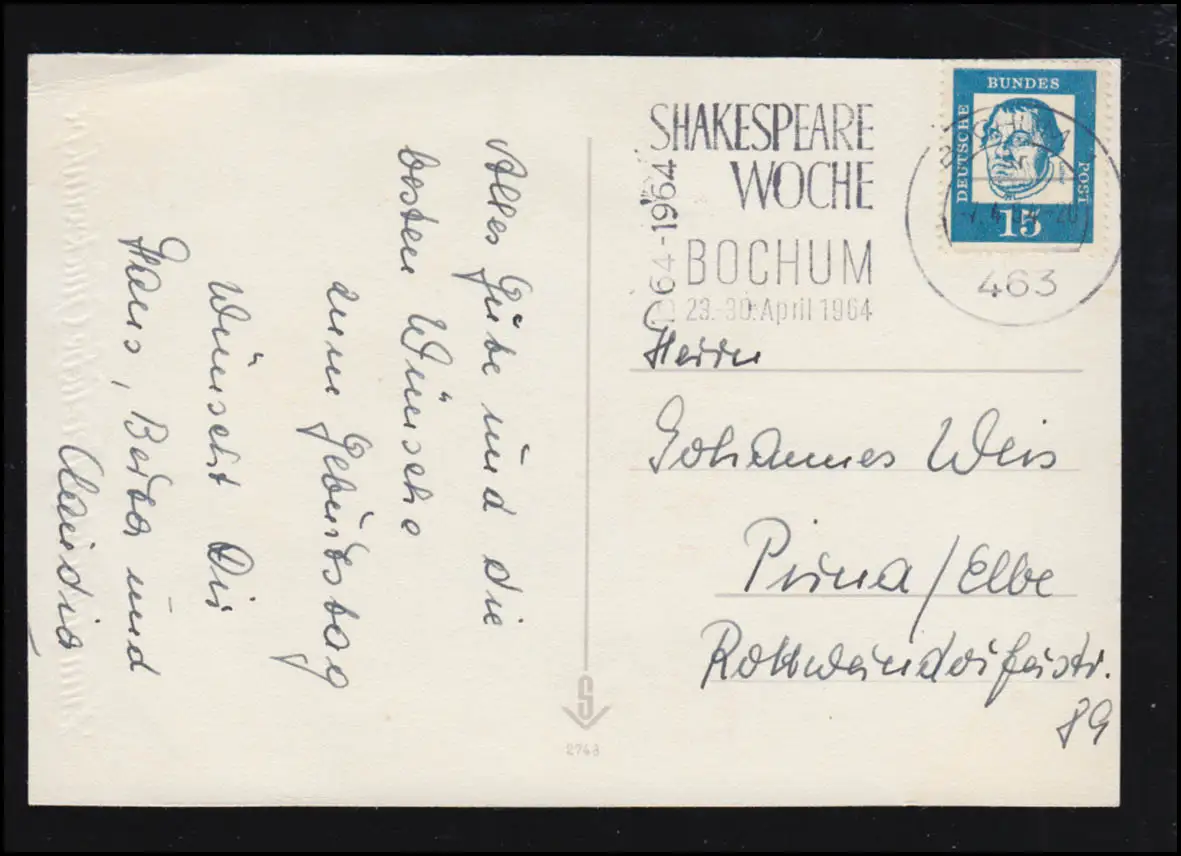 Alles Gute und die
besten Wünsche
zum Geburtstag
wünscht Dir
Hans, Berta und
Claudia
SHAKESPEARE
WOCHE
BOCHUM
23.-30. April 1964
1564-1964
BUNDES
DEUTSCHE
POST
15
BOCHUM
463
Herrn
Johannes Weis
Pirna/Elbe
Rottwerndorferstr.
89
S
2743